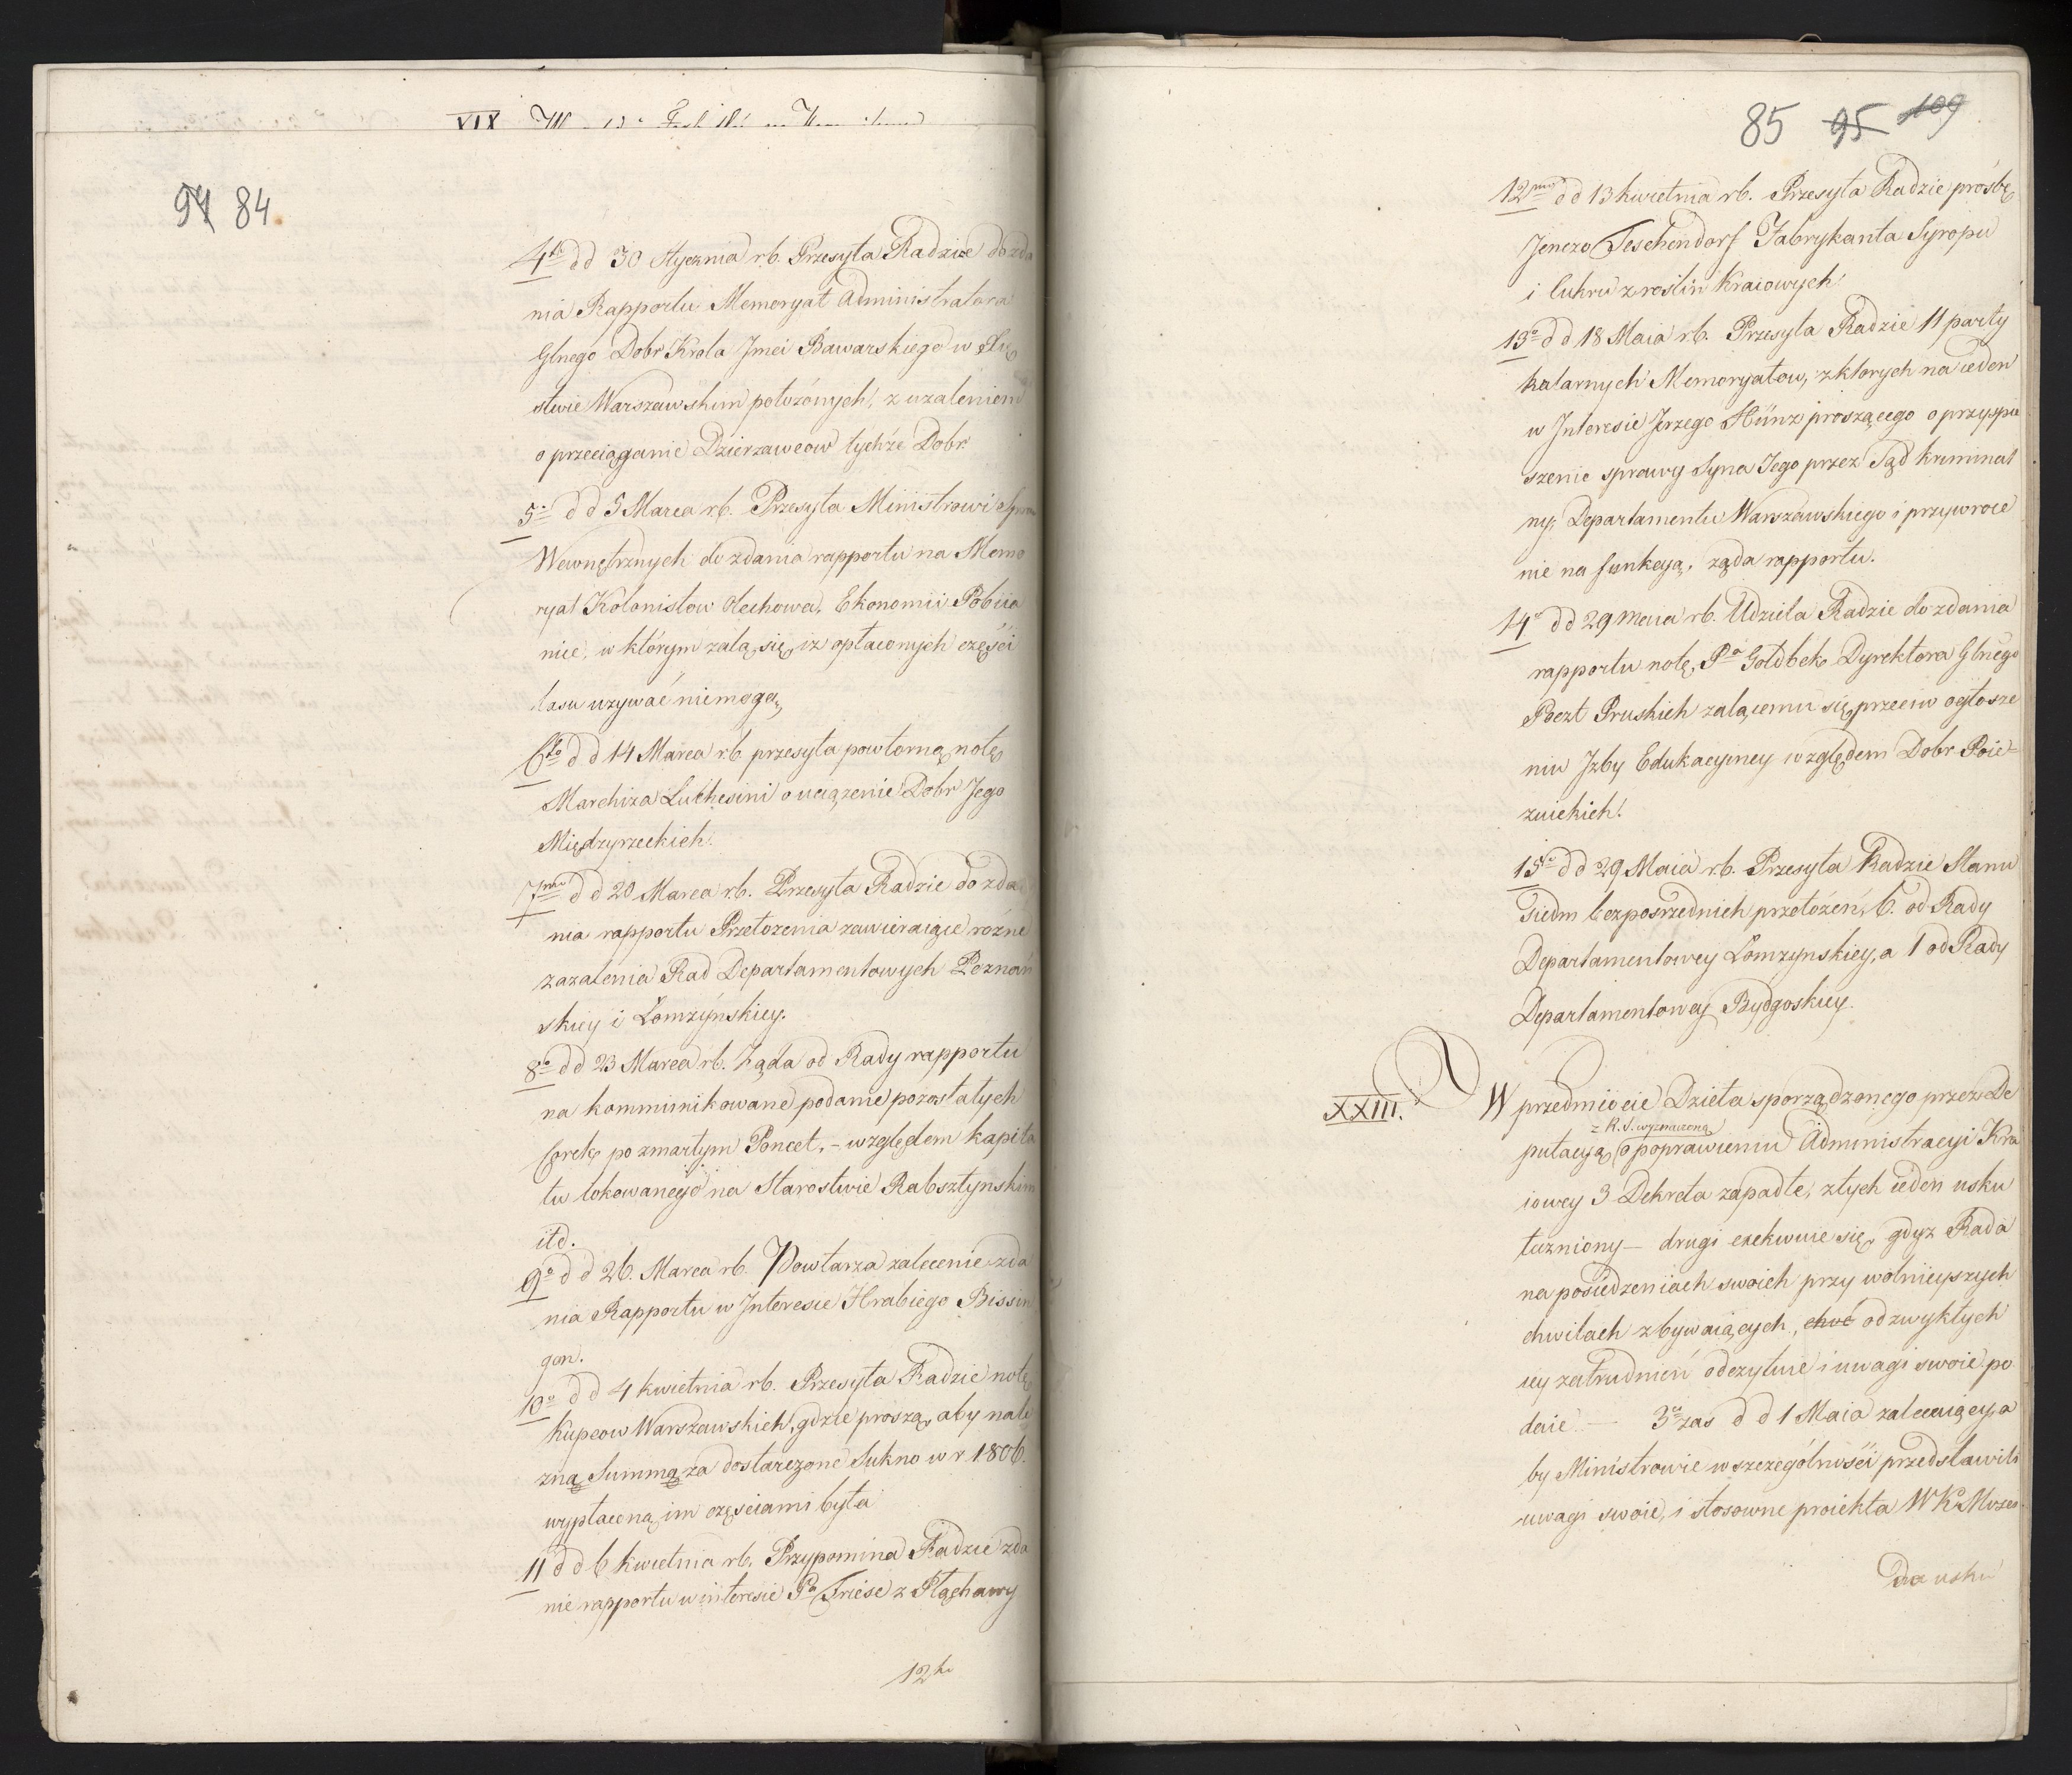 XIX
94 84.
4to dd 30 Stycznia rb. Przesyła Radzie do zda
nia Rapportu Memoryał Administratora
Glnego Dobr Krola Jmci Bawarskiego w Xię
stwie Warszawskim położonych, z użaleniem
o przeciąganie Dzierzawcow tychże Dobr
5o dd 5 Marca rb. Przesyła Ministrowi Spraw
Wewnętrznych do zdania rapportu na Memo
ryał Kolonistow Olechowa, Ekonomii Pobiia
nice, w którym żalą się, iż opłaconych części
lasu używać niemogą,
6to dd 14 Marca rb. przesyła powtorną notę
Marchiza Luchesini o uciążenie Dobr Jego
Międzyrzeckich.
7mo dd 20 Marca rb. Przesyła Radzie do zda
nia rapportu Przełożenia zawieraiące różne
zażalenia Rad Departamentowych Poznań
skiey i Łomżyńskiey.
8o dd 23 Marca rb. Żąda od Rady rapportu
na kommunikowane podanie pozostałych
Corek po zmarłym Poncet, - względem kapita
łu lokowanego na Starostwie Rabsztynskim
itd.
9o dd 26. Marca rb. Powtarza zalecenie zda
nia Rapportu w Interesie Hrabiego Bissin
gen.
10o dd 4 kwietnia rb. Przesyła Radzie notę
Kupcow Warszawskich, gdzie proszą, aby nale
żną Summą za dostarczone Sukno w r 1806.
wypłaconą im częsciami była
11 dd 6 kwietnia rb. Przypomina Radzie zda
nie rapportu w interesie Pa Friese z Płachawy
12to
85 95 109
12mo dd 13 kwietnia rb. Przesyła Radzie prośbę
Jenczo Teschendorf Fabrykanta Syropu
i Cukru z roslin Kraiowych
13o dd 18 Maia rb. Przesyła Radzie 11 party
kularnych Memoryałow, z ktorych na ieden
w Interesie Jerzego Hünz proszącego o przyspie
szenie sprawy Syna Jego przez Sąd kriminal
ny, Departamentu Warszawskiego i przywroce
nie na funkcyą, żąda rapportu.
14o dd 29 Maia rb. Udziela Radzie do zdania
rapportu notę, Pa Goldbek Dyrektora Glnego
Poczt Pruskich żalącemu się przeciw ogłosze
niu Jzby Edukacyiney względem Dobr Poie-
zuickich.
15o dd 29 Maia rb. Przesyła Radzie Stanu
siedm bezposrzednich przełożeń, 6. od Rady
Departamentowey Łomżynskiey, a 1 od Rady
Departamentowey Bydgoskiey.
XXIII. W przedmiocie Dzieła sporządzonego przez De
= R. S. wyznaczoną
putacyą o poprawieniu Administracyi Kra
iowey 3 Dekreta zapadłe, z tych ieden usku
teczniony - drugi exekwuie się, gdyż Rada
na posiedzeniach swoich przy wolnieyszych
chwilach zbywaiących, choć od zwykłych
iey zatrudnień odczytuie i uwagi swoie po
daie - 3ci zas dd 1 Maia zalecaiący, a
by Ministrowie w szczególnośći przedstawili
uwagi swoie, i stosowne proiekta WKMosci.
Do usku